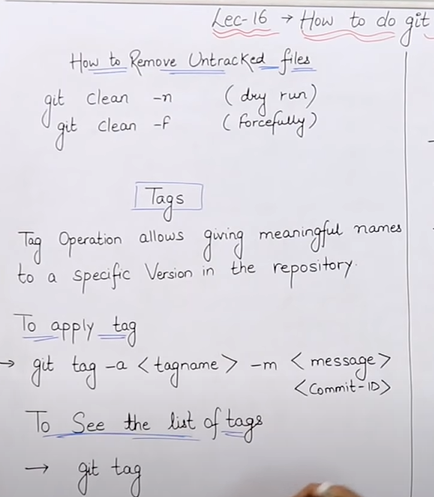 Lec-16 → How to do git
How to Remove Untracked files
git clean -n (dry run)
git clean -f (forcefully)
Tags
Tag Operation allows giving meaningful names
to a specific Version in the repository.
To apply tag
→ git tag -a <tagname> -m <message>
<Commit-ID>
To See the list of tags
→ git tag